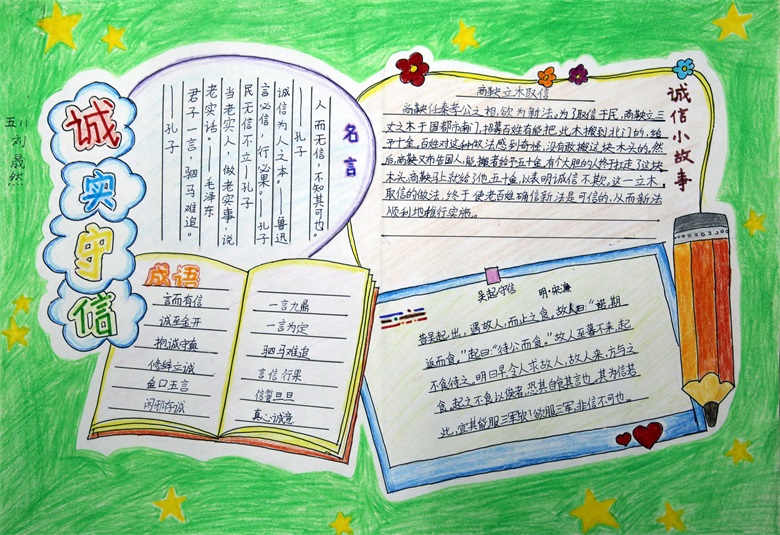 五(1)
刘晟然
诚实守信
名言
人而无信,不知其可也。
——孔子
诚信为人之本。——鲁迅
言必信,行必果。——孔子
民无信不立——孔子
当老实人,做老实事,说
老实话。——毛泽东
君子一言,驷马难追。
——孔子
成语
言而有信
诚至金开
抱诚守真
修辞立诚
金口玉言
闲邪存诚
一言九鼎
一言为定
驷马难追
言信行果
信誓旦旦
真心诚意
诚信小故事
商鞅立木取信
商鞅任秦孝公之相,欲为新法。为了取信于民,商鞅立三
丈之木于国都市南门,招募百姓有能把此木搬到北门的,给
予十金,百姓对这种做法感到奇怪,没有敢搬这块木头的,然
后,商鞅又布告国人,能搬者给予五十金,有个大胆的人终于扛走了这块
木头,商鞅马上就给了他五十金,以表明诚信不欺,这一立木
取信的做法,终于使老百姓确信新法是可信的,从而新法
顺利地推行实施。
吴起守信 明·宋濂
昔吴起出,遇故人,而止之食,故人曰:“诺,期
返而食。”起曰:“待公而食。”故人至暮不来,起
不食待之,明日早,令人求故人,故人来,方与之
食,起之不食以俟者,恐其自食其言也,其为信若
此,宜其能服三军欤?欲服三军,非信不可也。